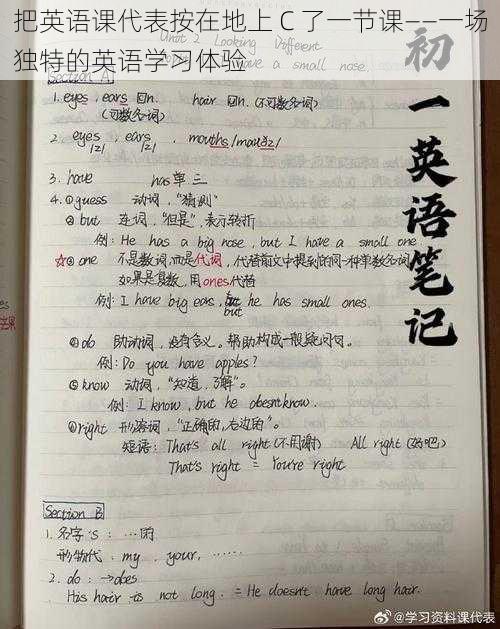 把英语课代表按在地上C了一节课——一场
独特的英语学习体验
初一英语笔记
Unit 2 Looking Different
I have a small nose.
Section A
1. eyes, ears 回n. hair 回n. (不可数名词)
(可数名词)
2. eyes, ears, mouths/mauðz/
/z/ /z/
3. have has 单三
4. ①guess 动词, "猜测"
②but 连词, "但是", 表示转折
例: He has a big nose, but I have a small one
☆③one 不是数词, 而是代词, 代替前文中提到的同一种单数名词
如果是复数, 用ones代替
例: I have big ears, but he has small ones.
but
④do 助动词, 没有含义。帮助构成一般疑问句。
例: Do you have apples?
⑤know 动词, "知道, 了解"。
例: I know, but he doesn't know.
⑥right 形容词, "正确的, 右边的"。
短语: That's all right (不用谢) All right (好吧)
That's right = You're right
Section B
1. 名字's: …的
形物代: my, your, ……
2. do: → does
His hair is not long. = He doesn't have long hair.
@学习资料课代表